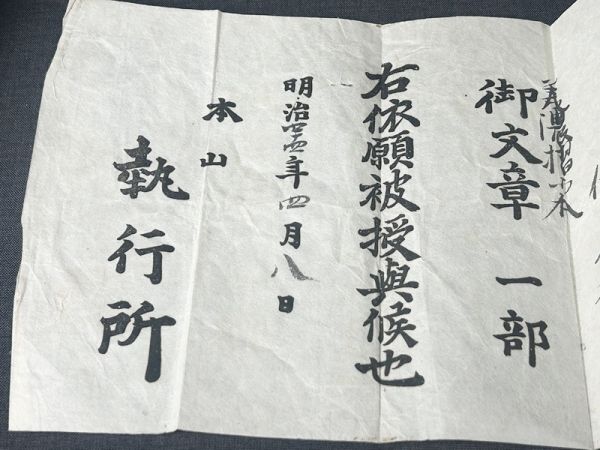 美濃
御文章 一部
右依願被授與候也
明治廿五年四月八日
本山
執行所